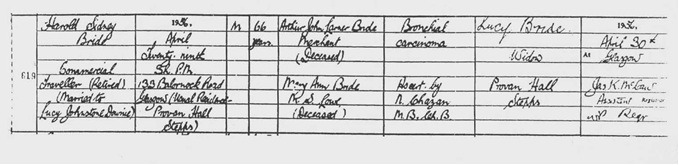 619
Harold Sidney
Bride
Commercial
Traveller (Retired)
(Married to
Lucy Johnstone Downie)
1956.
April
Twenty-ninth
5h. P.M.
133 Balornock Road
Glasgow (Usual Residence-
Provan Hall
Stepps)
M
66
years.
Arthur John Larner Bride
Merchant
(Deceased)
Mary Ann Bride
M.S. Lowe
(Deceased)
Bronchial
carcinoma
As cert. by
N. Chazan
M.B. Ch. B.
Lucy Bride.
Widow
Provan Hall
Stepps
1956.
April 30th
At Glasgow
Jas K. McCaw
Assistant
Regr